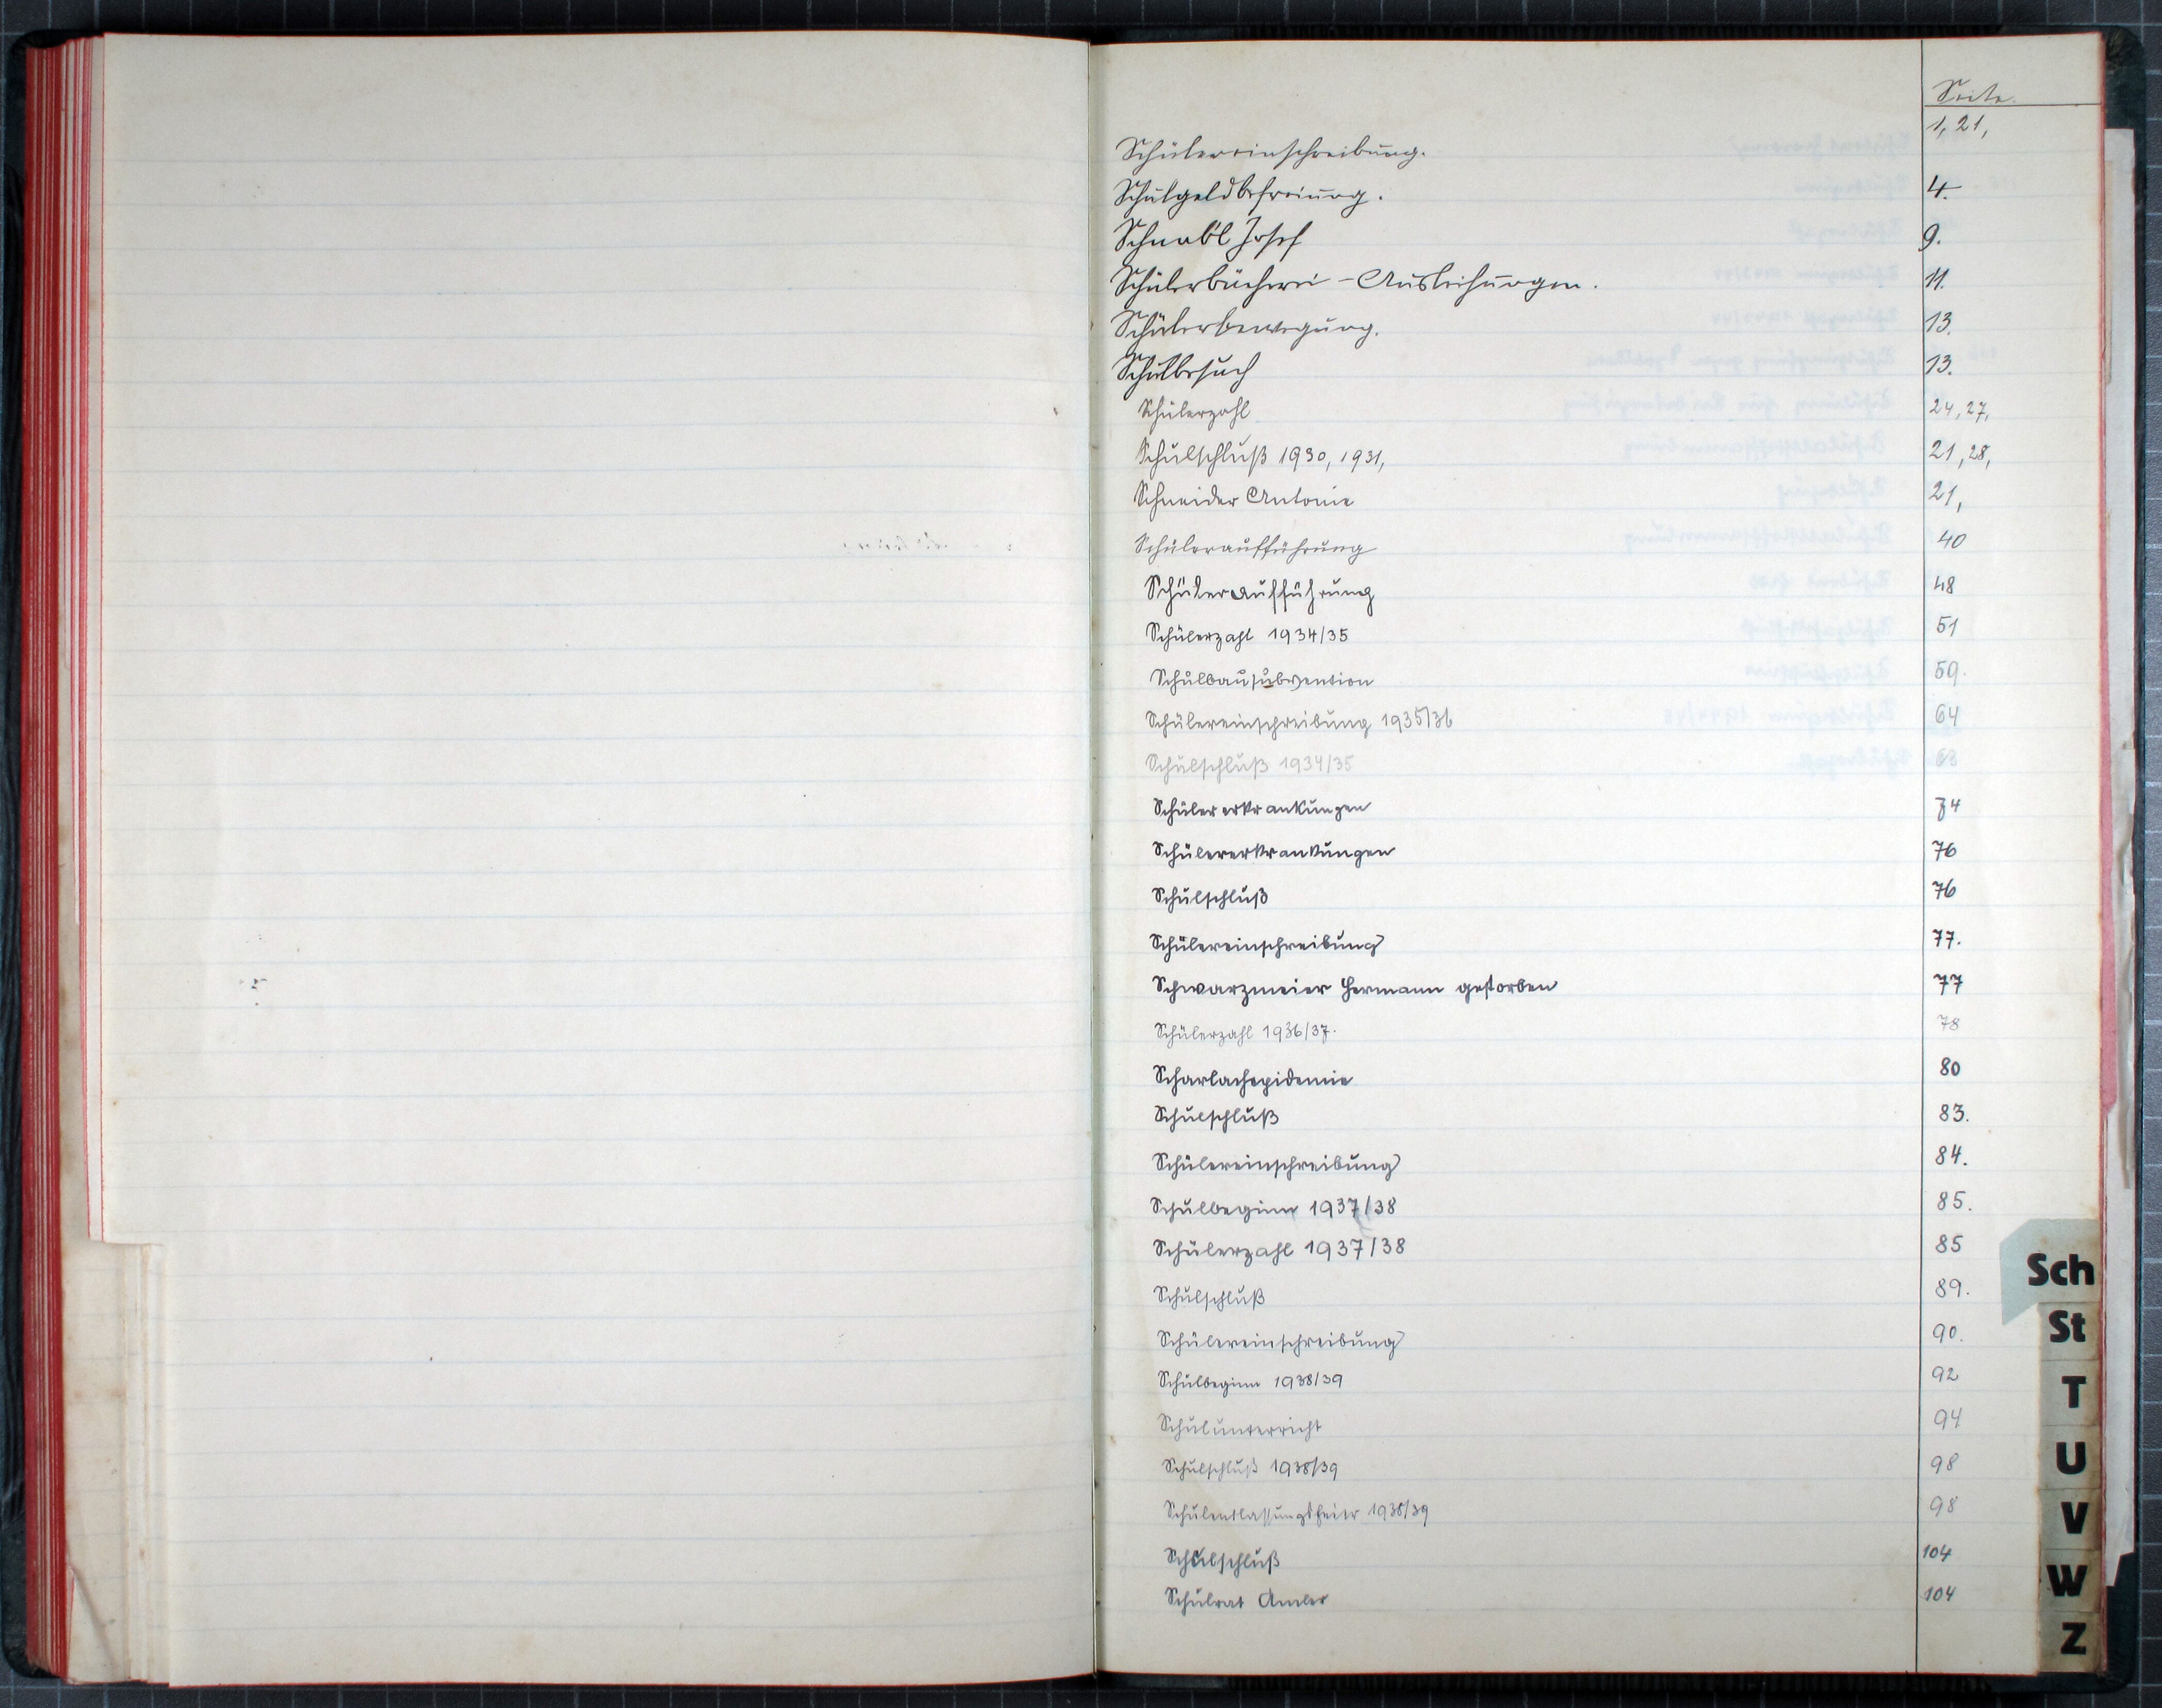 Seite.
Schülereinschreibung. 1, 21,
Schulgeldbefreiung. 4.
Schnabl Josef 9.
Schülerbücherei - Ausleihungen. 11.
Schülerbewegung. 13.
Schulbesuch 13.
Schülerzahl 24, 27,
Schulschluß 1930, 1931, 21, 28,
Schneider Antonie 21,
Schüleraufführung 40
Schüleraufführung 48
Schülerzahl 1934/35 51
Schulbausubvention 59.
Schülereinschreibung 1935/36 64
Schulschluß 1934/35 63
Schülererkrankungen 74
Schülererkrankungen 76
Schulschluß 76
Schülereinschreibung 77.
Schwarzmeier Hermann gestorben 77
Schülerzahl 1936/37. 78
Scharlachepidemie 80
Schulschluß 83.
Schülereinschreibung 84.
Schulbeginn 1937/38 85.
Schülerzahl 1937/38 85
Schulschluß 89.
Schülereinschreibung 90.
Schulbeginn 1938/39 92
Schulunterricht 94
Schulschluß 1938/39 98
Schulentlassungsfeier 1938/39 98
Schulschluß 104
Schulrat Amler 104
Sch
St
T
U
V
W
Z